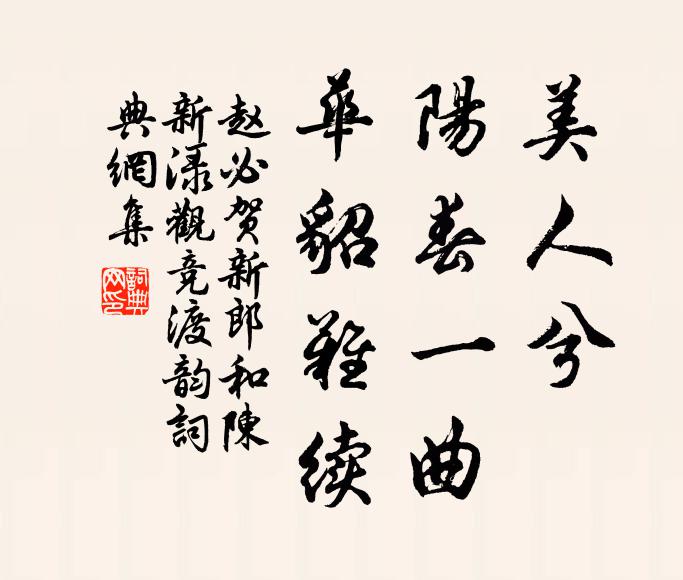 美人兮
陽春一曲
華貂難续
赵必贺新郎和陳
新渌觀竞渡韵詞
典網集
詞典网印